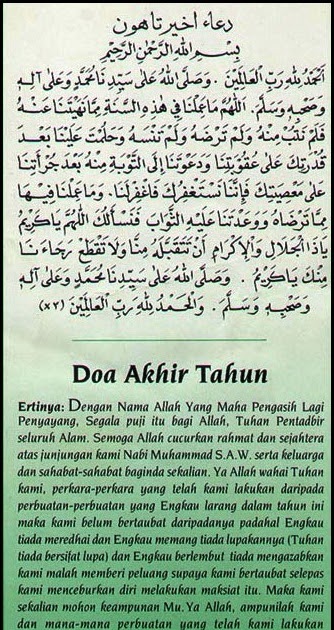 دعاء اخير تاهون
بِسْمِ اللهِ الرَّحْمٰنِ الرَّحِيْمِ
اَلْحَمْدُ لِلّٰهِ رَبِّ الْعَالَمِيْنَ . وَصَلَّى اللهُ عَلٰى سَيِّدِنَا مُحَمَّدٍ وَعَلٰى آلِهِ
وَصَحْبِهِ وَسَلَّمَ . اَللّٰهُمَّ مَا عَمِلْنَا فِي هٰذِهِ السَّنَةِ مِمَّا نَهَيْتَنَا عَنْهُ
فَلَمْ نَتُبْ مِنْهُ وَلَمْ تَرْضَهُ وَلَمْ تَنْسَهُ وَحَلُمْتَ عَلَيْنَا بَعْدَ
قُدْرَتِكَ عَلٰى عُقُوْبَتِنَا وَدَعَوْتَنَا إِلَى التَّوْبَةِ مِنْهُ بَعْدَ جُرْأَتِنَا
عَلٰى مَعْصِيَتِكَ فَإِنَّا نَسْتَغْفِرُكَ فَاغْفِرْلَنَا . وَمَا عَمِلْنَا فِيْهَا
مِمَّا تَرْضَاهُ وَوَعَدْتَنَا عَلَيْهِ الثَّوَابَ فَنَسْأَلُكَ اللّٰهُمَّ يَا كَرِيْمُ
يَا ذَا الْجَلَالِ وَالْإِكْرَامِ أَنْ تَتَقَبَّلَهُ مِنَّا وَلَا تَقْطَعْ رَجَاءَنَا
مِنْكَ يَا كَرِيْمُ . وَصَلَّى اللهُ عَلٰى سَيِّدِنَا مُحَمَّدٍ وَعَلٰى آلِهِ
وَصَحْبِهِ وَسَلَّمَ . وَالْحَمْدُ لِلّٰهِ رَبِّ الْعَالَمِيْنَ . (٣×)
Doa Akhir Tahun
Ertinya: Dengan Nama Allah Yang Maha Pengasih Lagi
Penyayang, Segala puji itu bagi Allah, Tuhan Pentadbir
seluruh Alam. Semoga Allah cucurkan rahmat dan sejahtera
atas junjungan kami Nabi Muhammad S.A.W. serta keluarga
dan sahabat-sahabat baginda sekalian. Ya Allah wahai Tuhan
kami, perkara-perkara yang telah kami lakukan daripada
perbuatan-perbuatan yang Engkau larang dalam tahun ini
maka kami belum bertaubat daripadanya padahal Engkau
tiada meredhai dan Engkau memang tiada lupakannya (Tuhan
tiada bersifat lupa) dan Engkau berlembut tiada mengazabkan
kami malah memberi peluang supaya kami bertaubat selepas
kami menceburkan diri melakukan maksiat itu. Maka kami
sekalian mohon keampunan Mu. Ya Allah, ampunilah kami
dan mana-mana perbuatan yang telah kami lakukan